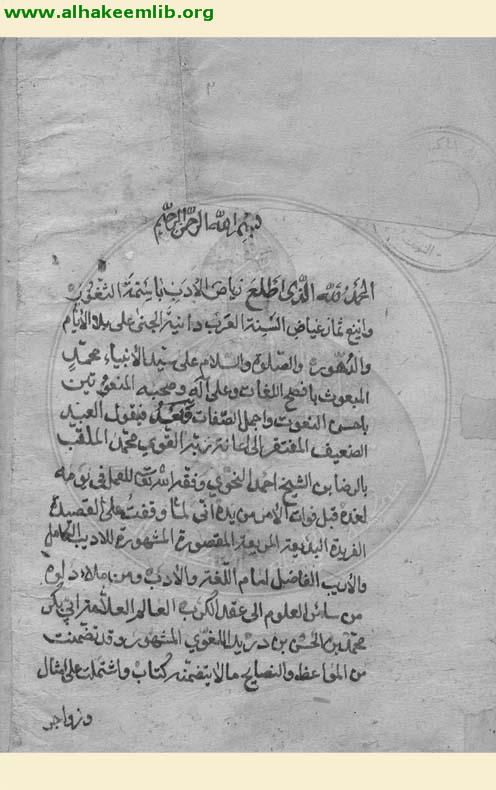 www.alhakeemlib.org
٢
بسم الله الرحمن الرحيم
الحمد لله الذي اطلع رياض الادب باسمة الثغور
واينع ثمار غياض السنة العرب دانية الجنى على الايام
والدهور والصلوة والسلام على سيد الأنبياء محمد
المبعوث بافصح اللغات وعلى آله وصحبه المنعوتين
باحسن النعوت واجمل الصفات وبعد فيقول العبد
الضعيف المفتقر الى اعانة ربه القوي محمد الملقب
بالرضا بن الشيخ احمد النحوي وفقه الله تعالى للعمل في يومه
لغده قبل فوات الامر من يده اني لما وقفت على القصيدة
الفريدة البديعة المقصورة المشهورة للاديب الكامل
والاريب الفاضل امام اللغة والأدب ومن
من سائر العلوم الى العالم العلامة ابي بكر
محمد بن الحسن بن دريد اللغوي المشهور وقد تضمنت
من المواعظ والنصايح ما لا يتضمنه كتاب واشتملت على امثال
وزواجر